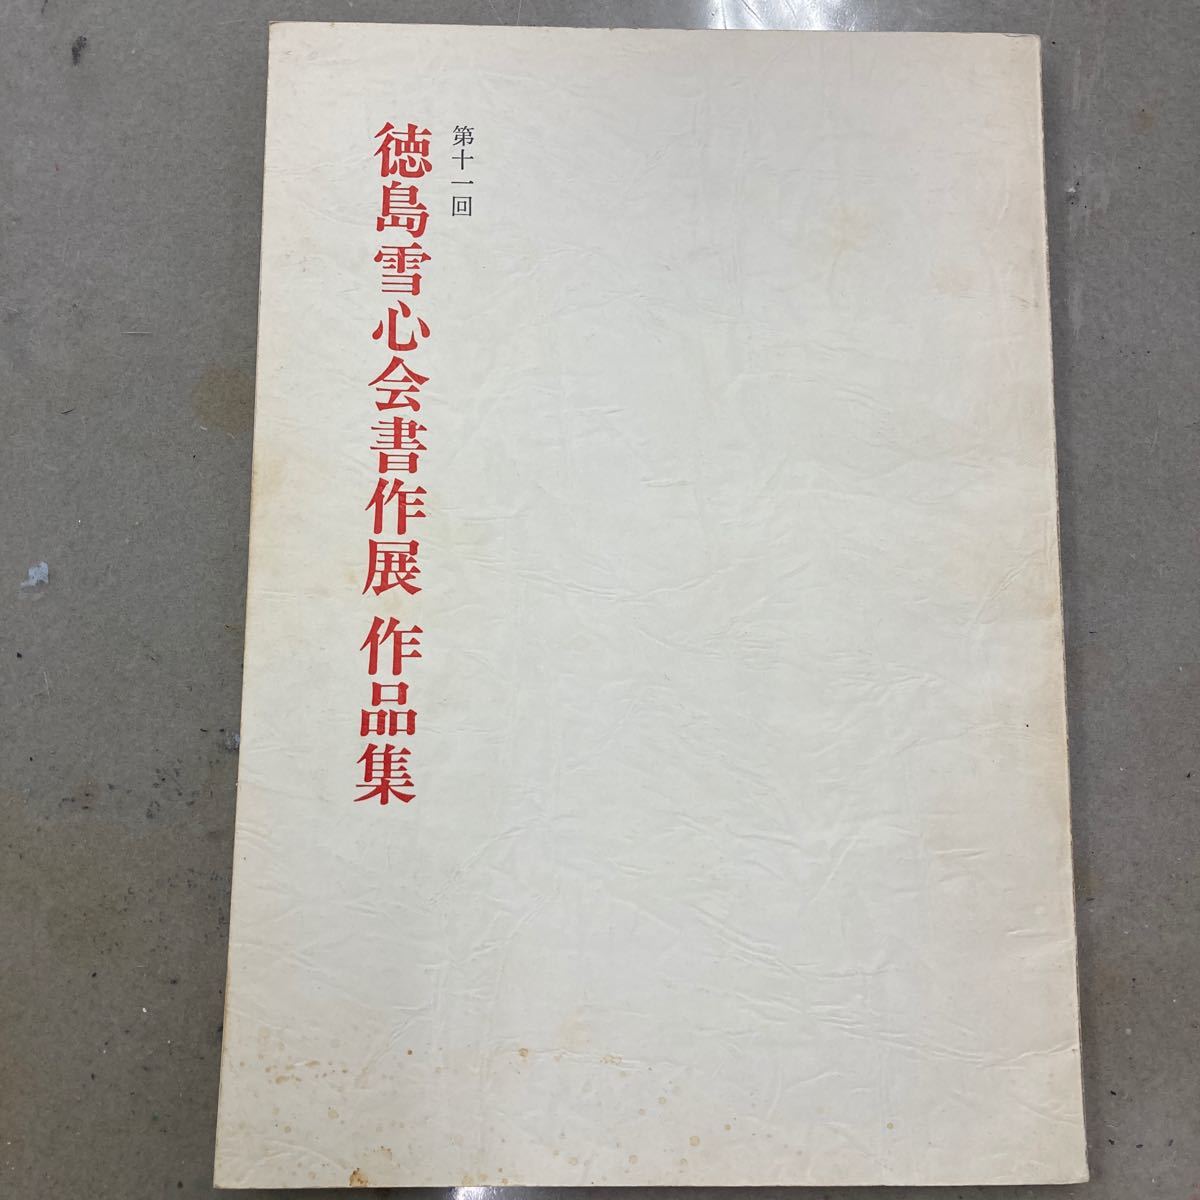 第十一回
徳島雪心会書作展 作品集